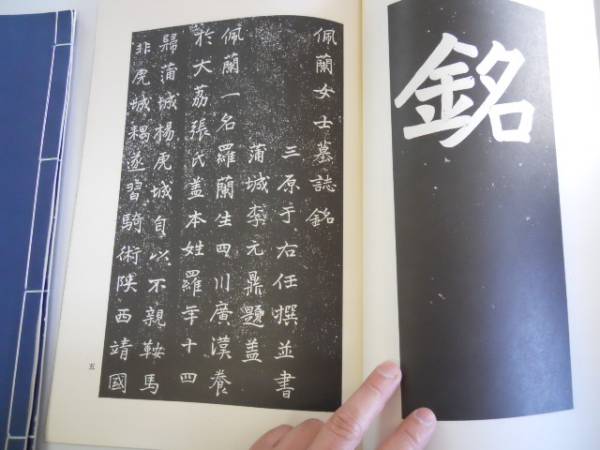 銘
佩蘭女士墓誌銘
三原于右任撰並書
蒲城李元鼎題盖
佩蘭一名羅蘭生四川廣漢養
於大荔張氏盖本姓羅年十四
歸蒲城楊虎城自以不親鞍馬
非虎城耦遂習騎術陝西靖國
五